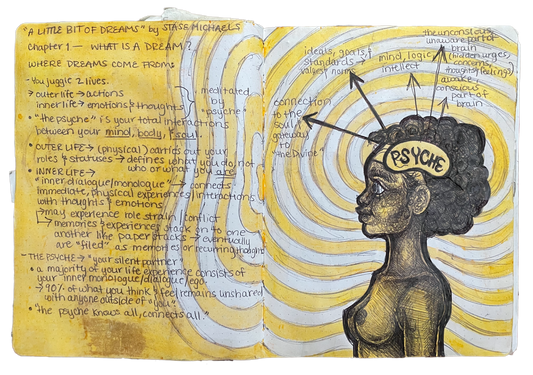 "A LITTLE BIT OF DREAMS" by STASE MICHAELS
Chapter 1 — WHAT IS A DREAM?
WHERE DREAMS COME FROM:
- You juggle 2 lives.
→ outer life → actions
inner life → emotions & thoughts
} meditated by "psyche"
• "the psyche" is your total interactions
between your mind, body, & soul.
• OUTER LIFE → (physical) carries out your
roles & statuses → defines what you do, not
who or what you are.
• INNER LIFE →
"inner dialogue/monologue" → connects
immediate, physical experiences/interactions
with thoughts & emotions
↳ may experience role strain/conflict
→ memories & experiences stack on to one
another like paper stacks → eventually
are "filed" as memories or recurring thoughts
- THE PSYCHE → "your silent partner"
• a majority of your life experience consists of
your inner monologue/dialogue/ego.
→ 90% of what you think & feel remains unshared
with anyone outside of "you"
• "the psyche knows all, connects all."
connection
to the
soul/
gateway
to
"the Divine"
ideals, goals, &
standards →
values & norms
mind, logic,
intellect
the unconscious,
unaware part of
brain
(hidden urges,
concerns,
thoughts & feelings)
awake,
conscious
part of
brain
PSYCHE